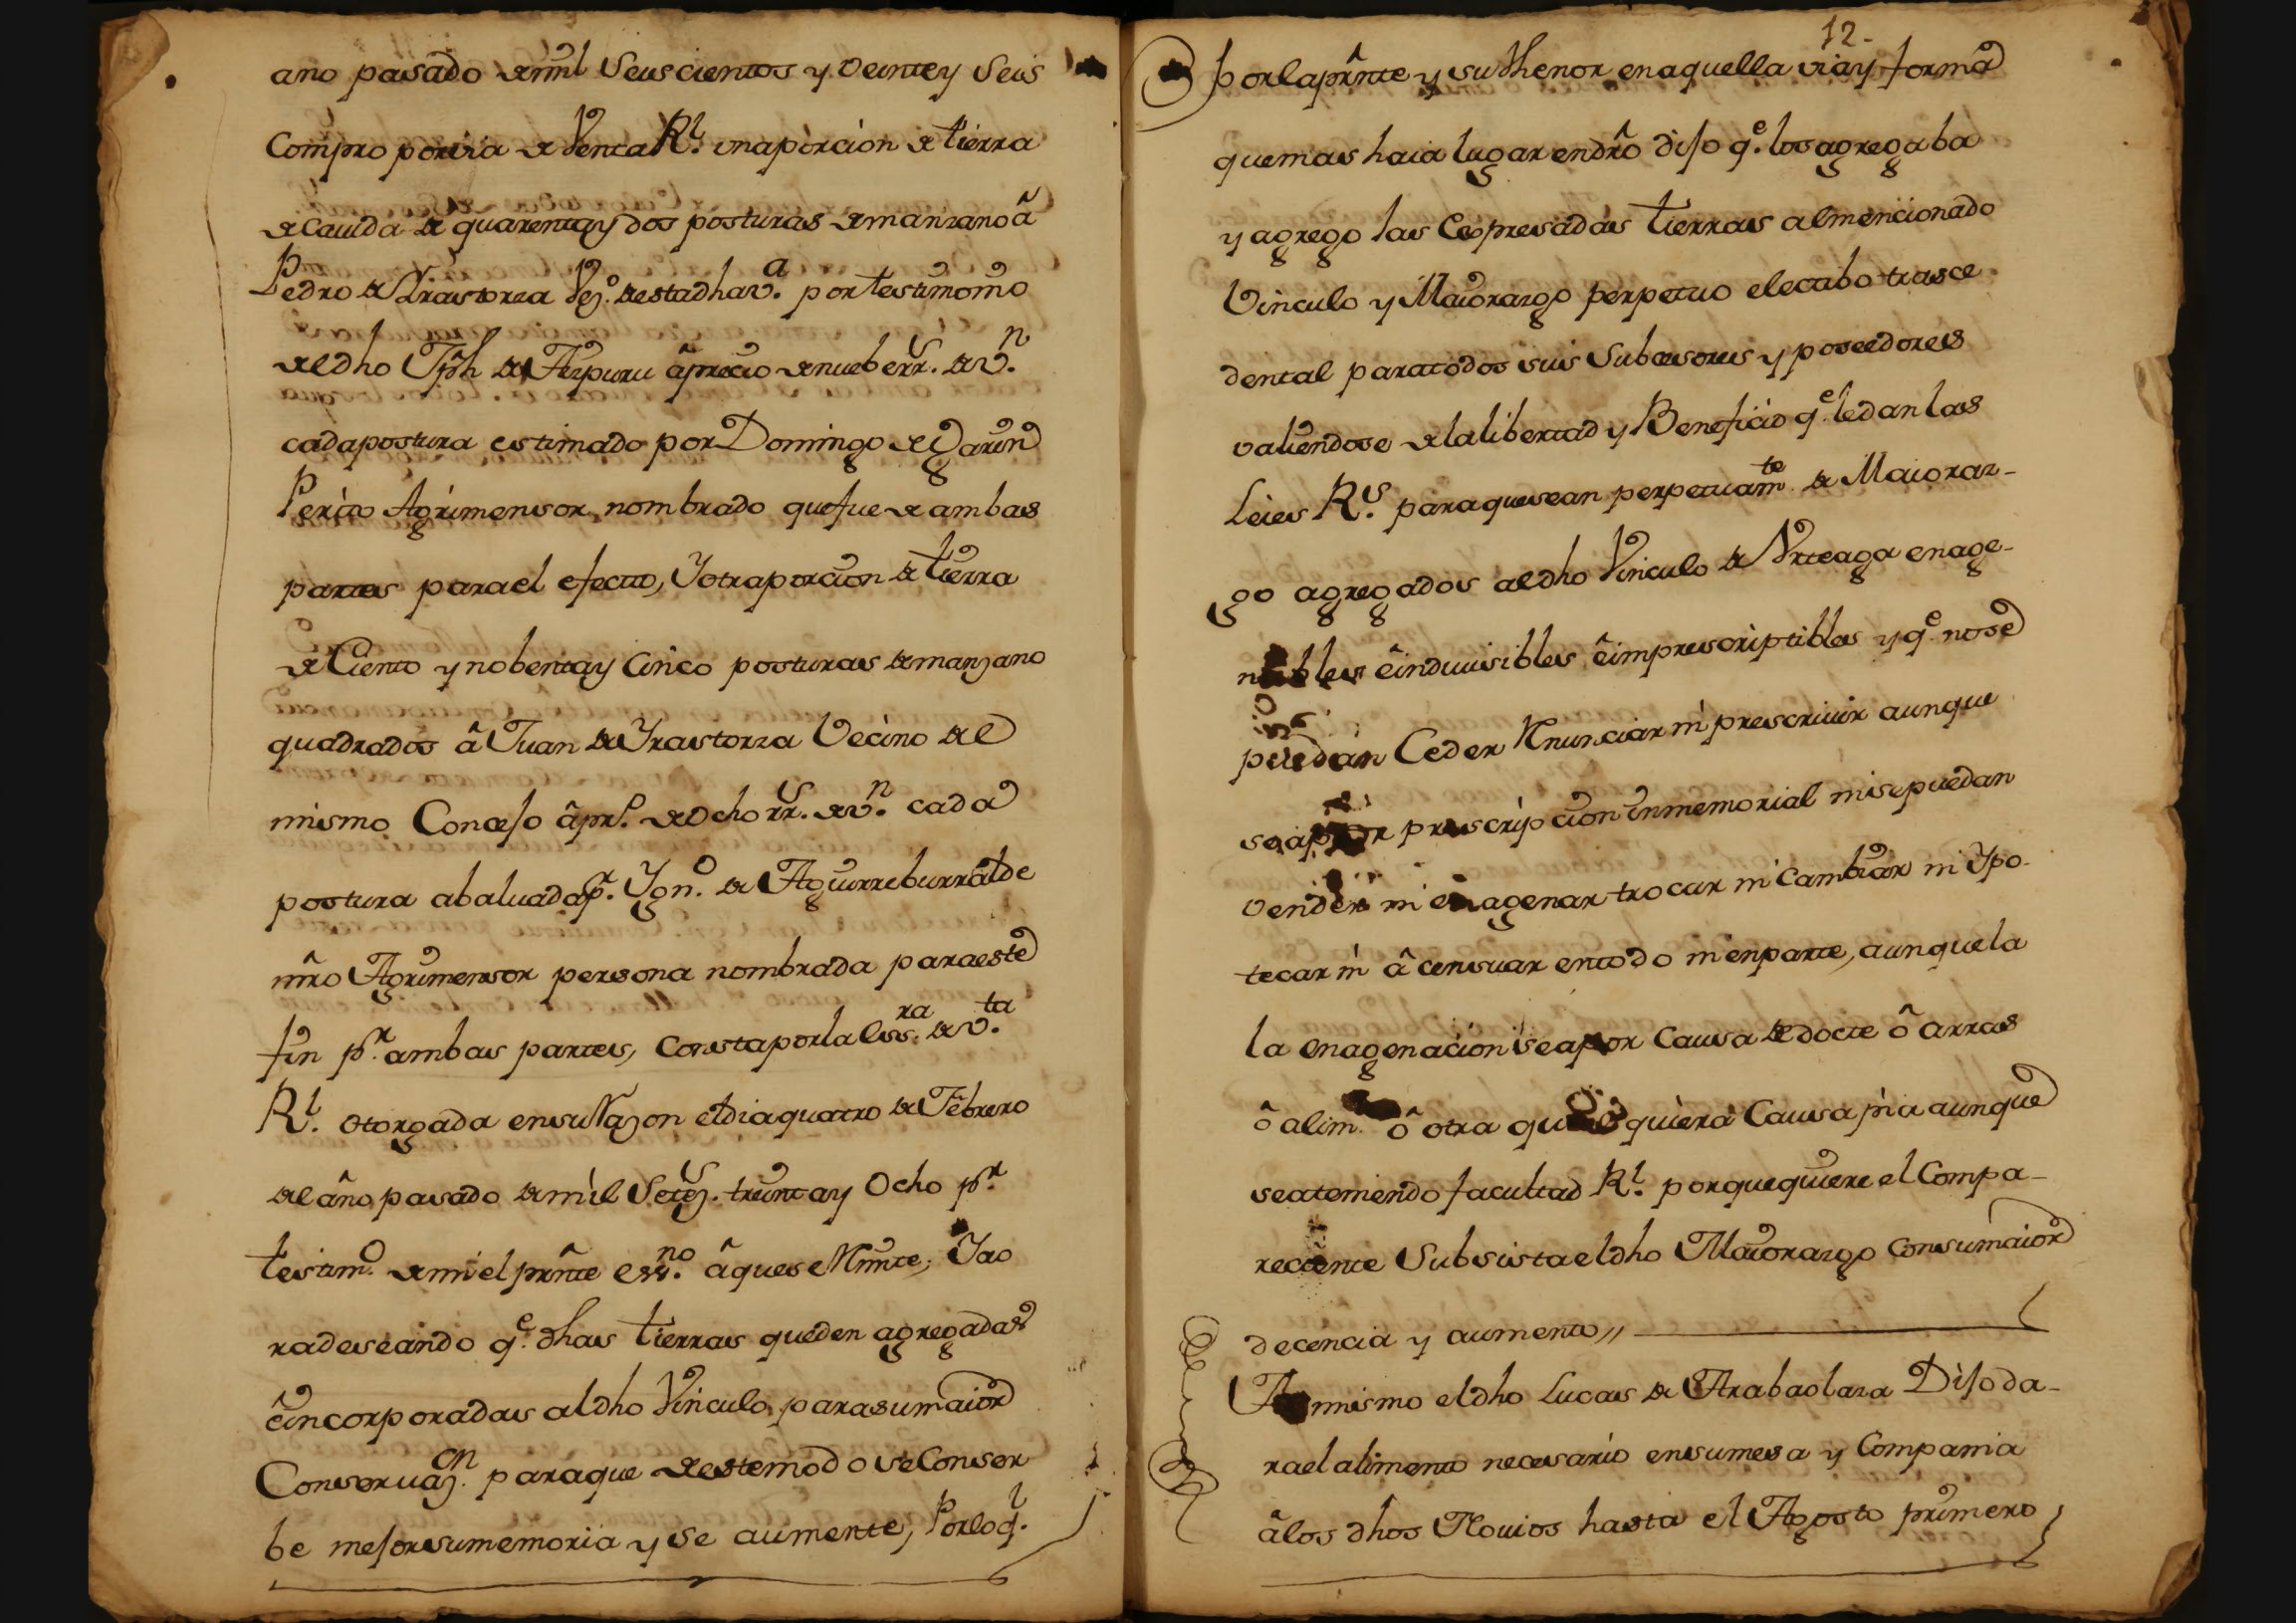 ano pasado de mil Seiscientos y Veinte y Seis
Compro por via de Venta Rl. una porcion de tierra
de Cauida de quarenta y dos posturas de manzano â
Pedro de Vrastorza Vezo. de esta dha va. por testimonio
de el dho Jph de Aizpuru â precio de nueberrs. de vn.
cada postura estimado por Domingo de Garin
Perito Agrimensor nombrado que fue de ambas
partes para el efecto, Y otra porcion de tierra
de Ciento y nobenta y Cinco posturas de manzano
quadrados â Juan de Yrastorza Vecino de el
mismo Concejo â pro. de Ocho rrs. de vn. cada
postura abaluada pr. Ygno. de Aguirreburralde
mro Agrimensor persona nombrada para este
fin pr. ambas partes, Consta por la essra. de vta.
Rl. otorgada en su Razon el dia quatro de Febrero
de el año pasado de mil Setezs. treinta y Ocho pr.
testimo. de mi el prnte essno. â que se Rmite; Y ao
ra deseando qe. dhas tierras queden agregadas
ê incorporadas al dho Vinculo, para su maior
Conseruazon. para que de este modo se Conser
be mejor su memoria y se aumente, Por lo ql.
12.
Por la prnte y su thenor en aquella via y forma
que mas haia lugar en dro dijo qe. los agregaba
y agrego las Expresadas tierras al mencionado
Vinculo y Maiorazgo perpetuo electibo trasce
dental para todos sus Subcesores y poseedores
valiendose de la libertad y Beneficio qe. le dan las
Leies Rs. para que sean perpetuamte. de Maioraz-
go agregados al dho Vinculo de Vrteaga enage-
nables ê indiuisibles ê impresciptibles y qe. no se
puedan Ceder Rnunciar ni prescriuir aunque
sea por prescripcion inmemorial ni se puedan
vender ni enagenar trocar ni Cambiar ni Ypo-
tecar ni âcensuar en todo ni en parte, aunque la
la enagenacion sea por Causa de docte ô arras
ô alim. ô otra qualquiera Causa pia aunque
sea teniendo facultad Rl. porque quiere el Compa-
reciente Subsista el dho Maiorazgo Con su maior
decencia y aumento,,
Asimismo el dho Lucas de Arabaolaza Dijo da-
ra el alimento necesario en su mesa y Compania
â los dhos Nouios hasta el Agosto primero